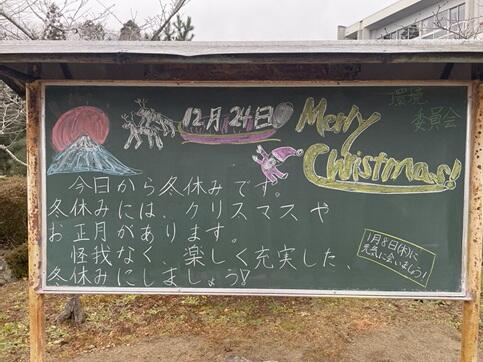 12月24日
Merry
Christmas!
環境
委員会
今日から冬休みです。
冬休みには、クリスマスや
お正月があります。
怪我なく、楽しく充実した、
冬休みにしましょう!
1月8日(木)に
元気に会いましょう!